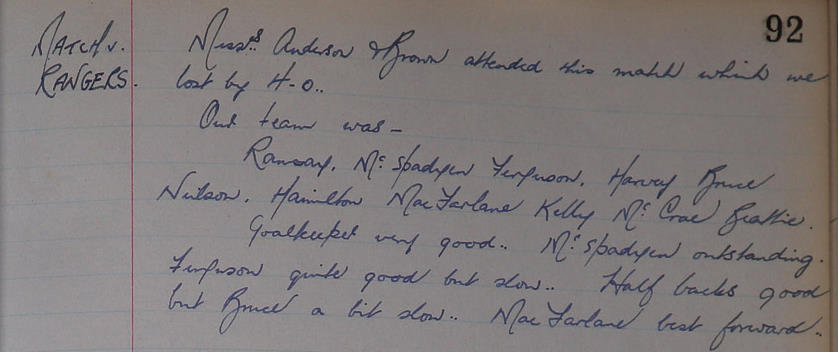 92
MATCH v. Messrs Anderson & Brown attended this match which we
RANGERS. lost by 4-0..
Our team was -
Ramsay, Mc Spadyen Ferguson, Harvey Bruce
Neilson, Hamilton MacFarlane Kelly Mc Crae Beattie.
Goalkeeper very good.. Mc Spadyen outstanding.
Ferguson quite good but slow.. Half backs good
but Bruce a bit slow.. MacFarlane best forward..